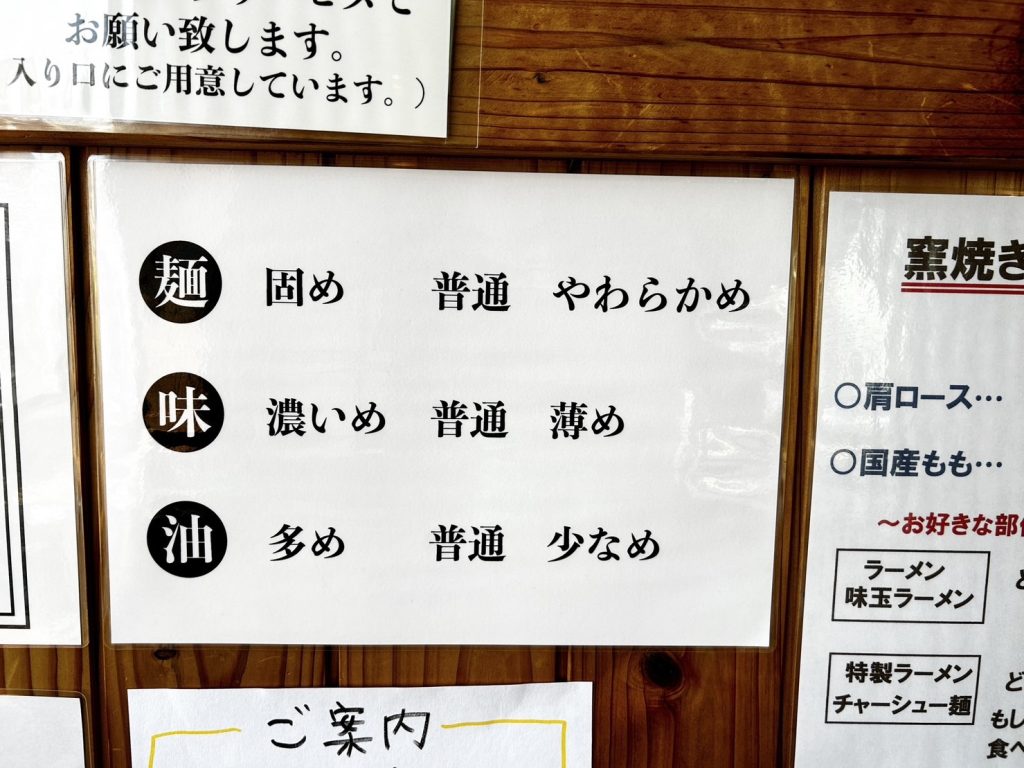 お願い致します。
入り口にご用意しています。）
麺 固め 普通 やわらかめ
味 濃いめ 普通 薄め
油 多め 普通 少なめ
ご案内
窯焼き
〇肩ロース…
〇国産もも…
～お好きな部
ラーメン
味玉ラーメン
特製ラーメン
チャーシュー麺
ど
もし
食べ